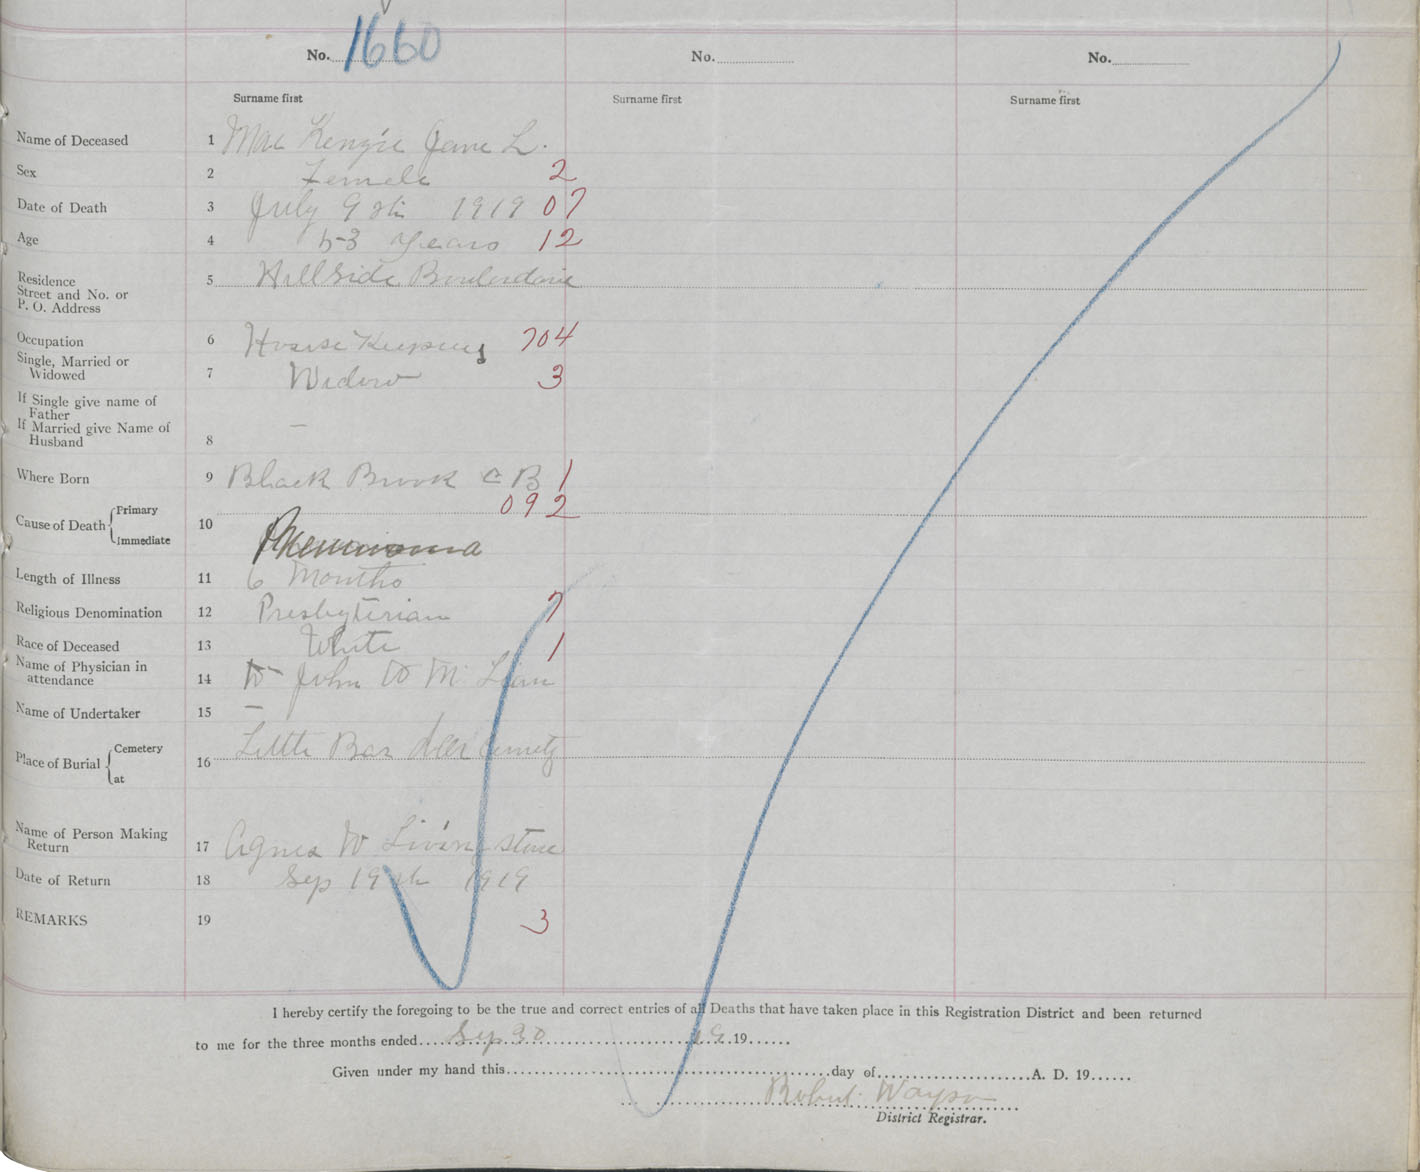 No. 1660 No. No.
Surname first Surname first Surname first
Name of Deceased 1 Mac Kenzie Jane L.
Sex 2 Female 2
Date of Death 3 July 9th 1919 07
Age 4 53 years 12
Residence
Street and No. or
P. O. Address 5 Hillside Boularderie
Occupation 6 House Keeping 704
Single, Married or
Widowed 7 Widow 3
If Single give name of
Father
If Married give Name of
Husband 8 —
Where Born 9 Black Brook C B 1
092
Cause of Death Primary
Immediate 10 Pneumonia
Length of Illness 11 6 Months
Religious Denomination 12 Presbyterian 7
Race of Deceased 13 White 1
Name of Physician in
attendance 14 Dr John
Name of Undertaker 15 —
Place of Burial Cemetery
at 16 Little Bras dor
Name of Person Making
Return 17 Agnes W Livingstone
Date of Return 18 Sep 19th 1919
REMARKS 19 3
I hereby certify the foregoing to be the true and correct entries of all Deaths that have taken place in this Registration District and been returned
to me for the three months ended Sep 30 19 19
Given under my hand this day of A. D. 19
Robert
District Registrar.